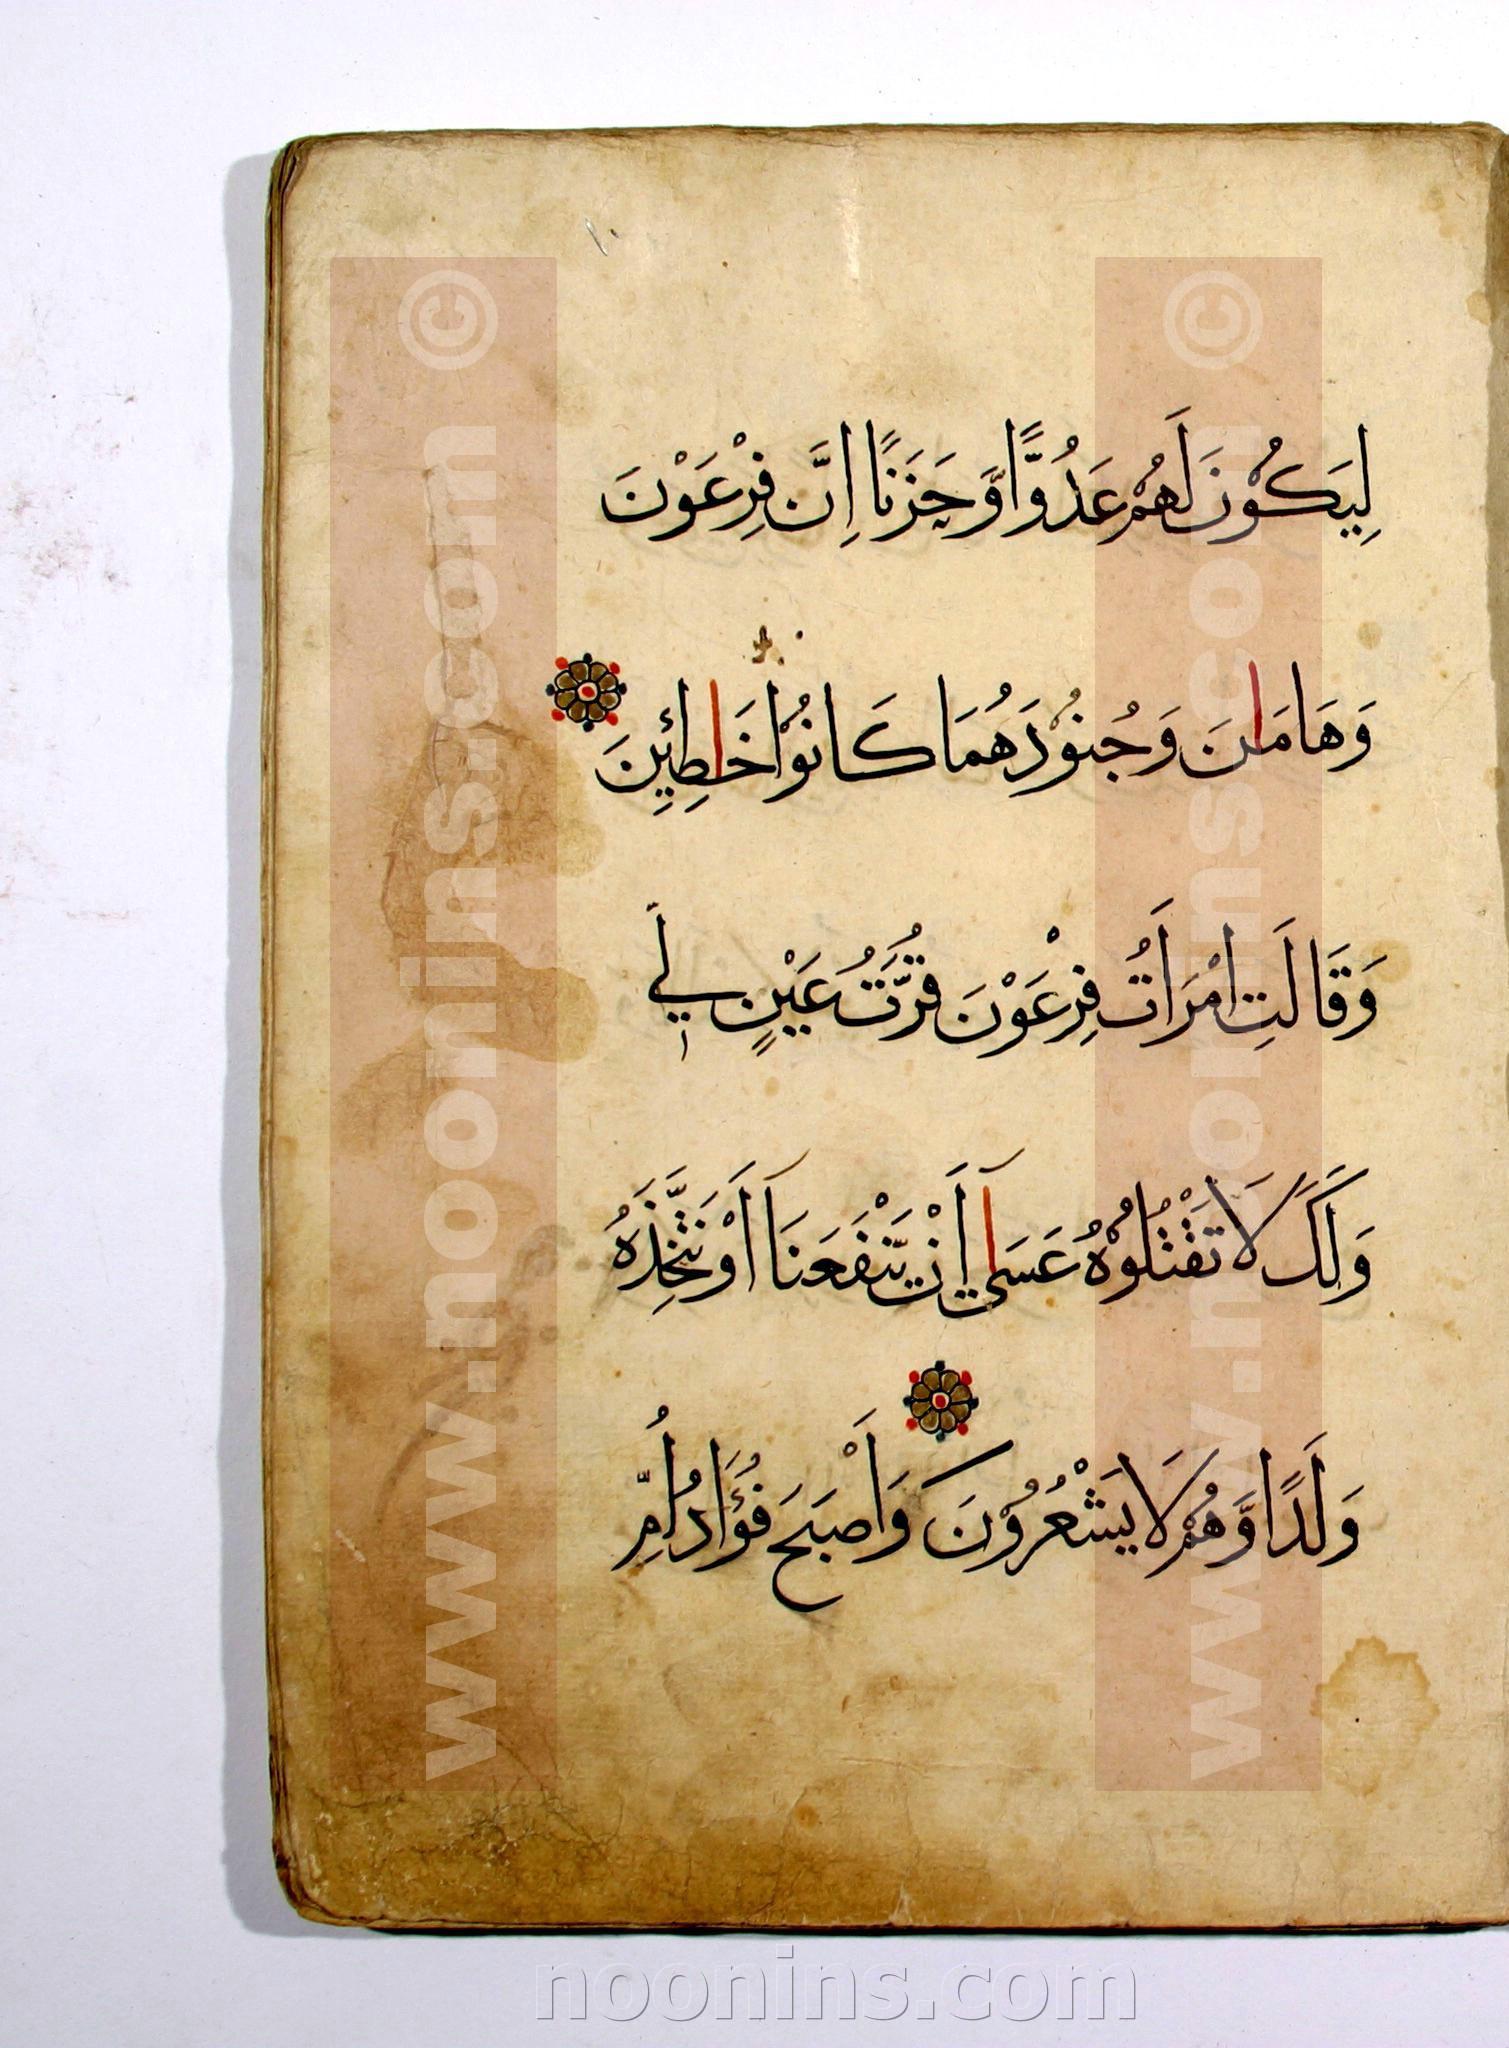 ١٠
لِيَكُوْنَ لَهُمْ عَدُوًّا وَّحَزَنًا اِنَّ فِرْعَوْنَ
وَهَامَانَ وَجُنُوْدَهُمَا كَانُوْا خَاطِئِيْنَ
وَقَالَتِ امْرَاَتُ فِرْعَوْنَ قُرَّتُ عَيْنٍ لِّيْ
وَلَكَ لَا تَقْتُلُوْهُ عَسَىٰٓ اَنْ يَّنْفَعَنَآ اَوْ نَتَّخِذَهُ
وَلَدًا وَّهُمْ لَا يَشْعُرُوْنَ وَاَصْبَحَ فُؤَادُ اُمِّ
www.noonins.com ©
www.noonins.com ©
noonins.com